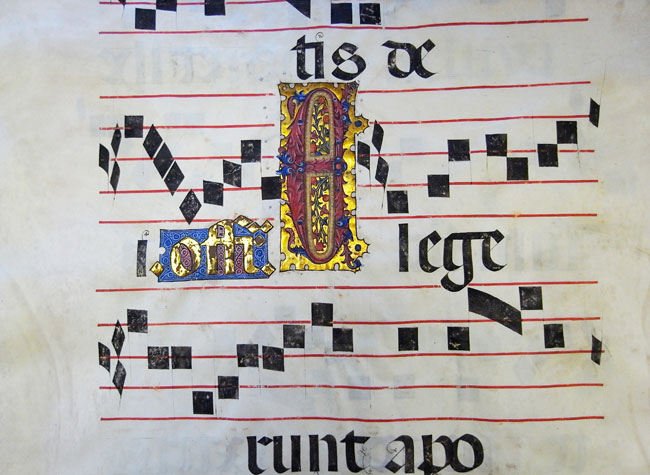 tis de
i offm E lege
runt apo